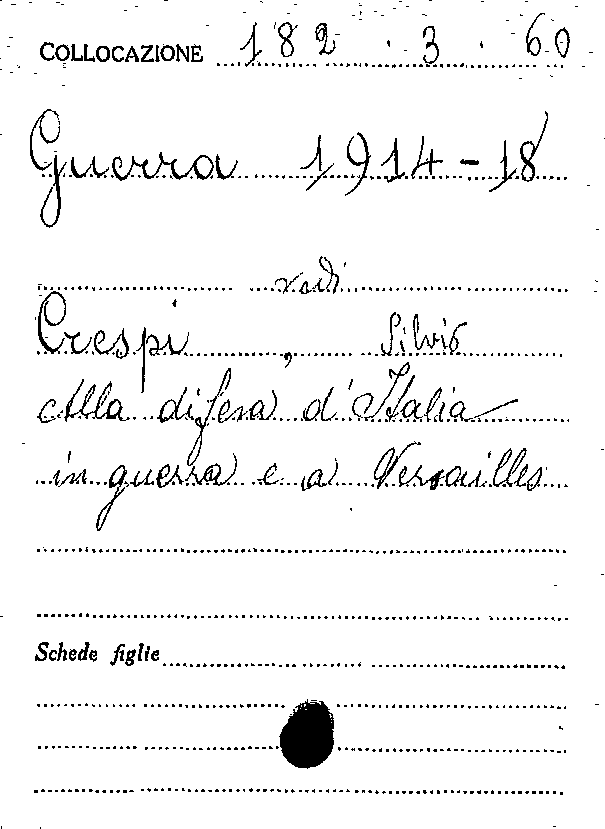 COLLOCAZIONE 182.3.60
Guerra 1914-18
vedi
Crespi, Silvio
Alla difesa d'Italia
in guerra e a Versailles
Schede figlie